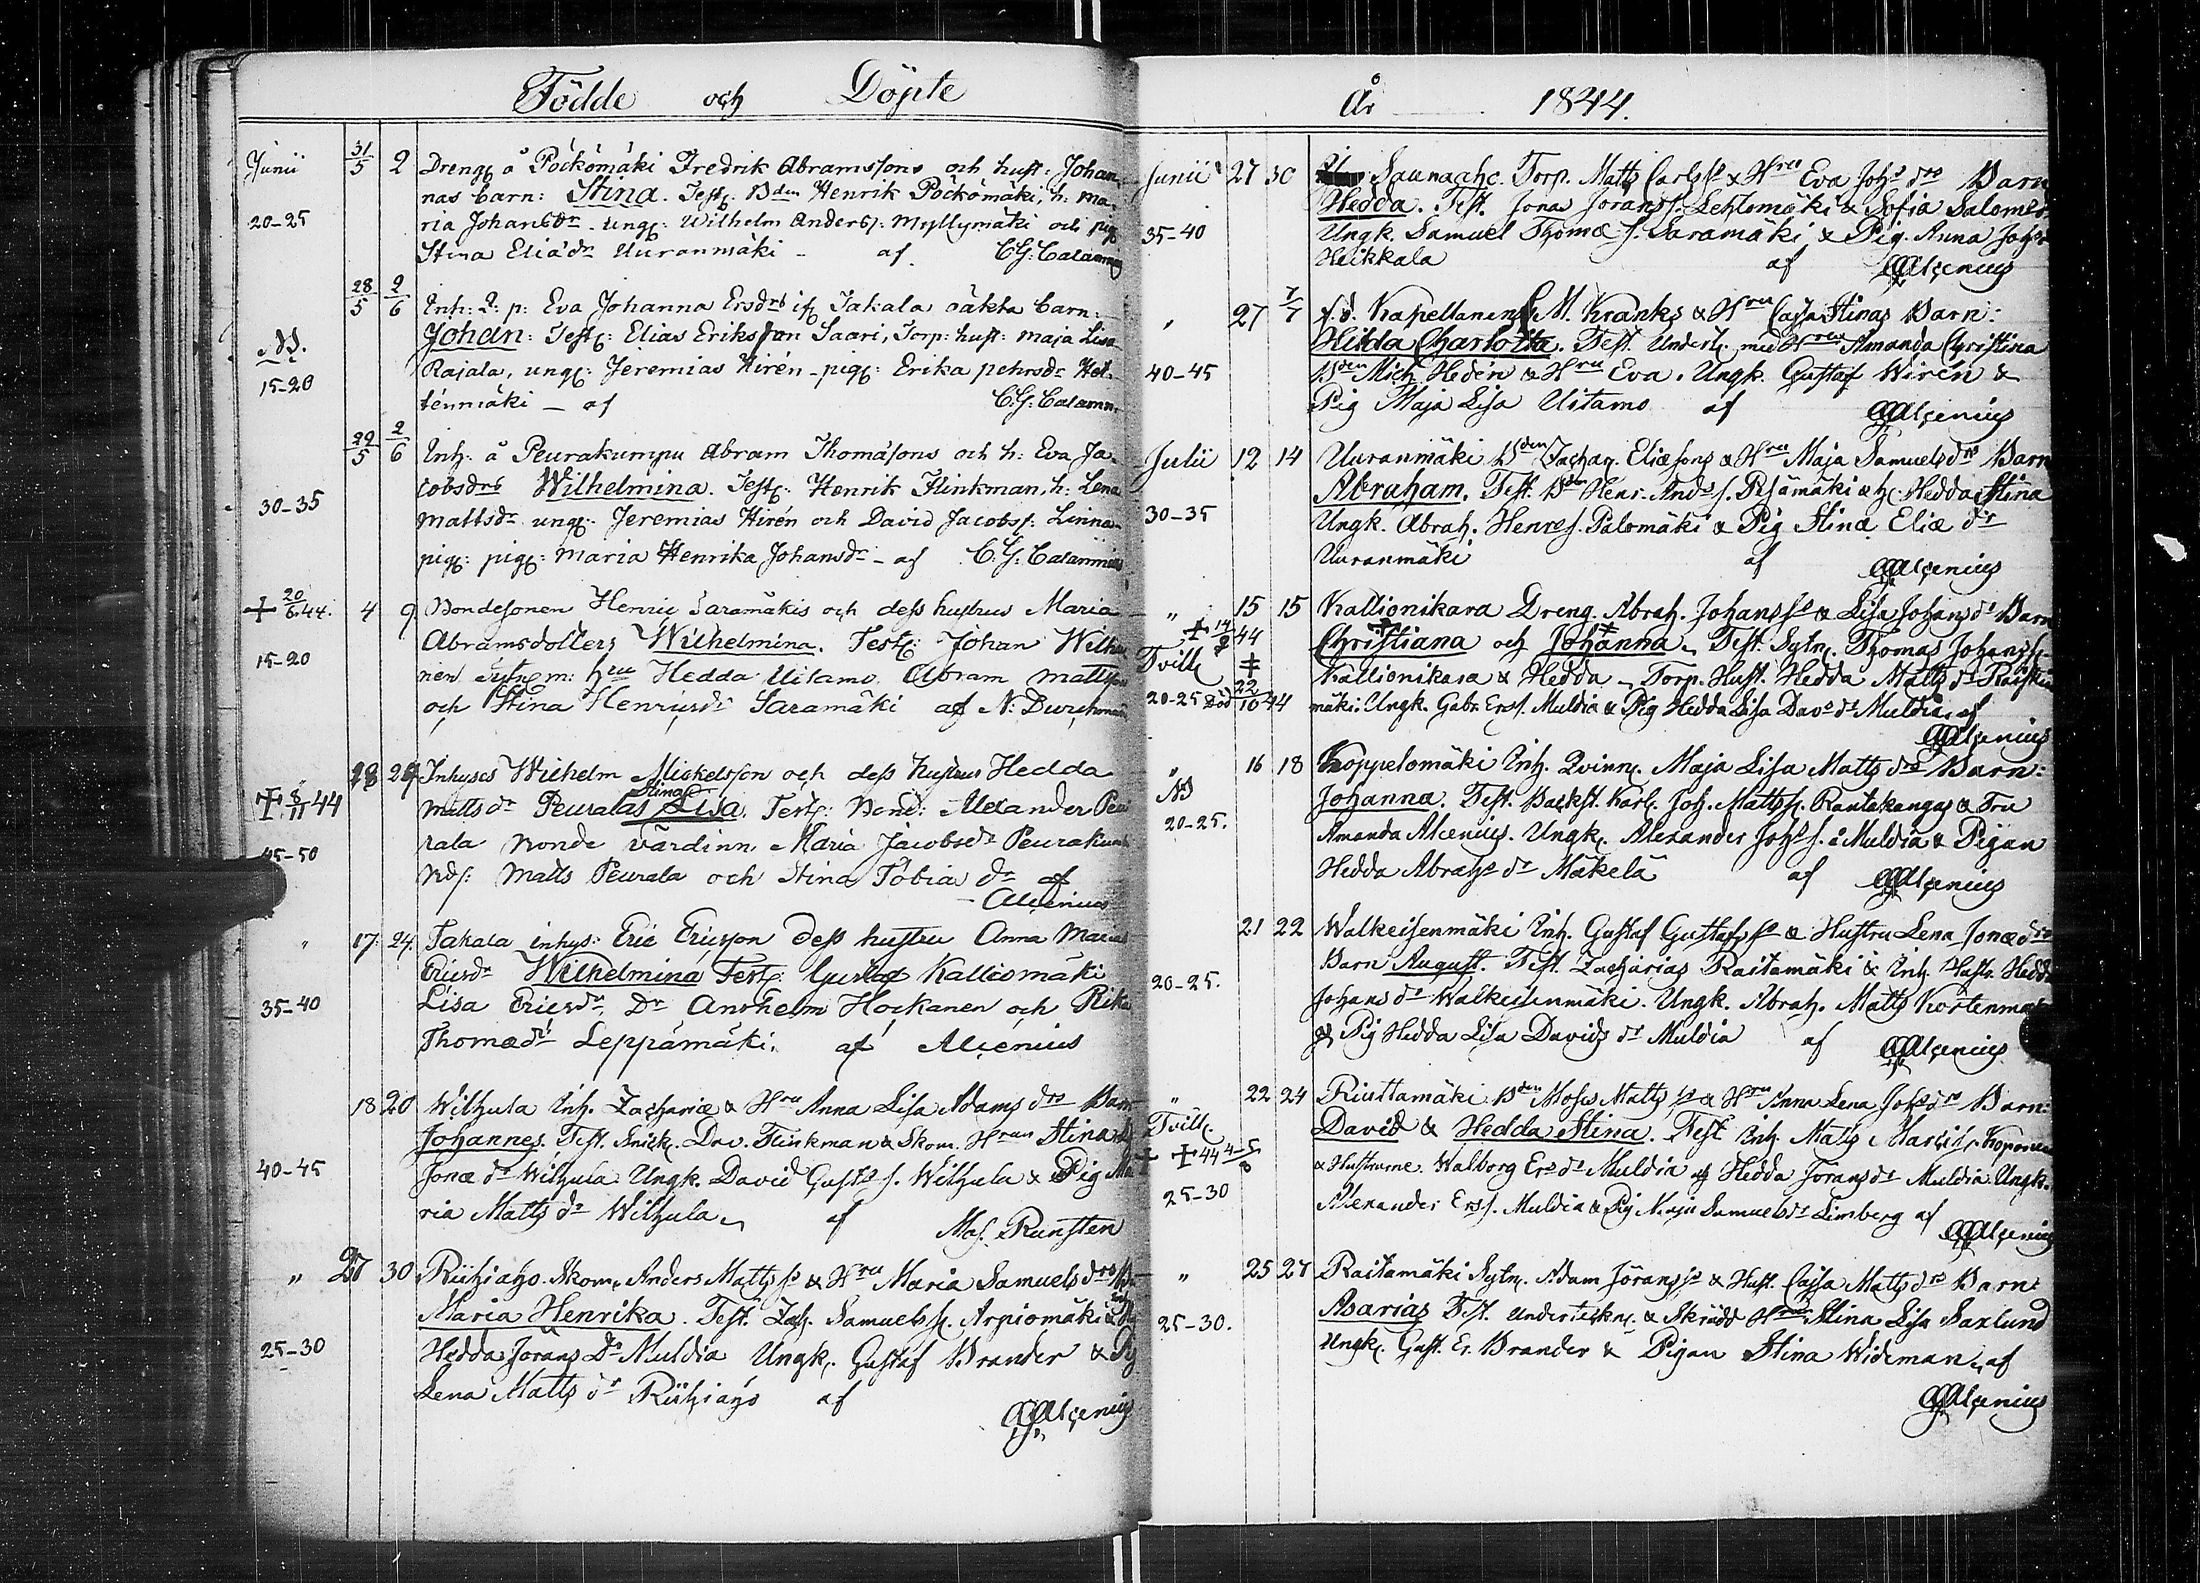 Födde och Döpte
Junii 31/5 2 Dreng å Pöckömäki Fredrik Abramssons och hust: Johan
nas barn: Stina. Test: Bden Henrik Pöckömäki, h: Ma
20-25 ria Johansdr ungk: Wilhelm Anders: Myllymäki och pig
Stina Eliädr Uuranmäki af C:G: Calamn
28/5 2/6 Inh: Q: p: Eva Johanna Ersdrs ifr Takala oäkta barn:
NB. Johan: Test: Elias Eriksson Saari, Torp: hust: Maja Lisa
15-20 Rajala, ungk: Jeremias Hirén - pig: Erika pehrsdr
ténmäki - af C:G: Calamn
29/5 2/6 Inh: å Peurakumpu Abram Thomäsons och h: Eva Ja
cobsdrs Wilhelmina. Test: Henrik Flinkman, h: Lena
30-35 Mattsdr ungk: Jeremias Hirén och David Jacobs: Linna
pig: pig: Maria Henrika Johansdr - af C:G: Calamnius
+ 20/6 44. 4 9 Bondesonen Henric Saramäkis och dess hustrus Maria
Abramsdotters Wilhelmina. Test: Johan Wilhu
15-20 nen Sytn m: hru Hedda Uitamo Abram Matts
och Stina Henricsdr Saramäki af N: Durchman
" 28 29 Inhyses Wilhelm Mickelsson och dess hustrus Hedda
+ 8/11 44 Mattsdr Peuralas Stina Lisa. Test: Bond: Alexander Peu
45-50 rala Bonde värdinn Maria Jacobsdr Peurakum
Bds: Matts Peurala och Stina Tobiä dr af
Alcenius
" 17 24 Takala inhys: Eric Ericsson dess hustru Anna Maria
Ericsdr Wilhelmina Test: Gustaf Kalliomäki
35-40 Lisa Ericsdr, Dr Anshelm Hockanen och Rika
Thomædr Leppämäki. af Alcenius
18 20 Wilhula Inh. Zachariæ & Hru Anna Lisa Adams drs Barn
Johannes. Test. Snick. Dav. Flinkman & Skom. Hrun Stina
40-45 Jonæ dr Wilhula Ungk. David Gusts s. Wilhula & Pig Ma
ria Matts dr Wilhula af Mas. Runsten
" 27 30 Riihiaho Skom. Anders Matts so & Hru Maria Samuels drs Bn
Maria Henrika. Test. Zach. Samuels s. Arpiomäki &
25-30 Hedda Jörans Dr Muldia Ungk. Gustaf Brander & Pig
Lena Matts dr Riihiaho af
Alcenius
År 1844.
Junii 27 30 Saunaaho. Torp. Matts Carls so & Hru Eva Johs drs Barn
Hedda. Test. Jonas Jörans s. Lehtomäki & Sofia Salomes
35-40 Ungk. Samuel Thomæ s. Saramäki & Pig. Anna Johs
Heikkala af Alcenius
" 27 7/7 f.d. Kapellanens M. Kranks & Hru Cajsa Stinas Barn:
Hilda Charlotta. Test. Undert. med Hru Amanda Christina
40-45 Bden Mich. Hedén & Hru Eva. Ungk. Gustaf Wirén &
Pig Maja Lisa Uitamo af Alcenius
Julii 12 14 Uuranmäki Bden Zachar. Eliæ sons & Hru Maja Samuels drs Barn
Abraham. Test. Bden Henr. Ands s. Pesämäki & h. Hedda Stina
30-35 Ungk. Abrah. Henrs s. Palomäki & Pig Stina Eliæ dr
Uuranmäki af Alcenius
" 15 15 Kallionikara Dreng. Abrah. Johans so & Lisa Johans ds Barn
+ 44 Christiana och Johanna. Test. Sytn. Thomas Johans s.
Tvill + Kallionikara & Hedda - Torp. Hust. Hedda Matts dr
20-25 död 22/10 44 mäki: Ungk. Gabr. Ers s. Muldia & Pig Hedda Lisa Davs dr Muldia, af
Alcenius
" 16 18 Koppelomäki Inh. Qvinn. Maja Lisa Matts drs Barn:
NB Johanna. Test. Backst. Karl. Joh. Matts s. Rautakangas & Fru
20-25. Amanda Alcenius. Ungk. Alexander Johs s. å Muldia & Pigan
Hedda Abrahs dr Mäkelä af Alcenius
21 22 Walkeisenmäki Inh. Gustaf Gustafs so & Hustru Lena Jonæ drs
20-25. Barn August. Test. Zacharias Raitamäki & Inh. Hustr. Hedda
Johans dr Walkeisenmäki. Ungk. Abrah. Matts Kortenmäki
& Pig Hedda Lisa Davids dr Muldia af Alcenius
" 22 24 Riuttamäki Bden Moses Matts so & Hru Anna Lena Johs drs Barn:
Tvill. David & Hedda Stina. Test Inh. Matts
+ + 44 & Hustrurne. Walborg Ers dr Muldia af Hedda Jörans dr Muldia. Ungk.
25-30 Alexander Ers s. Muldia & Pig Maja Samuels dr Limberg af
Alcenius
" 25 27 Raitamäki Sytn. Adam Jörans so & Hust. Cajsa Matts drs Barn:
25-30. Asarias Test. Underteckn. & Skrädd Hrun Stina Lisa Saxlund
Ungk. Gust. Er. Brander & Pigan Stina Wideman af
Alcenius